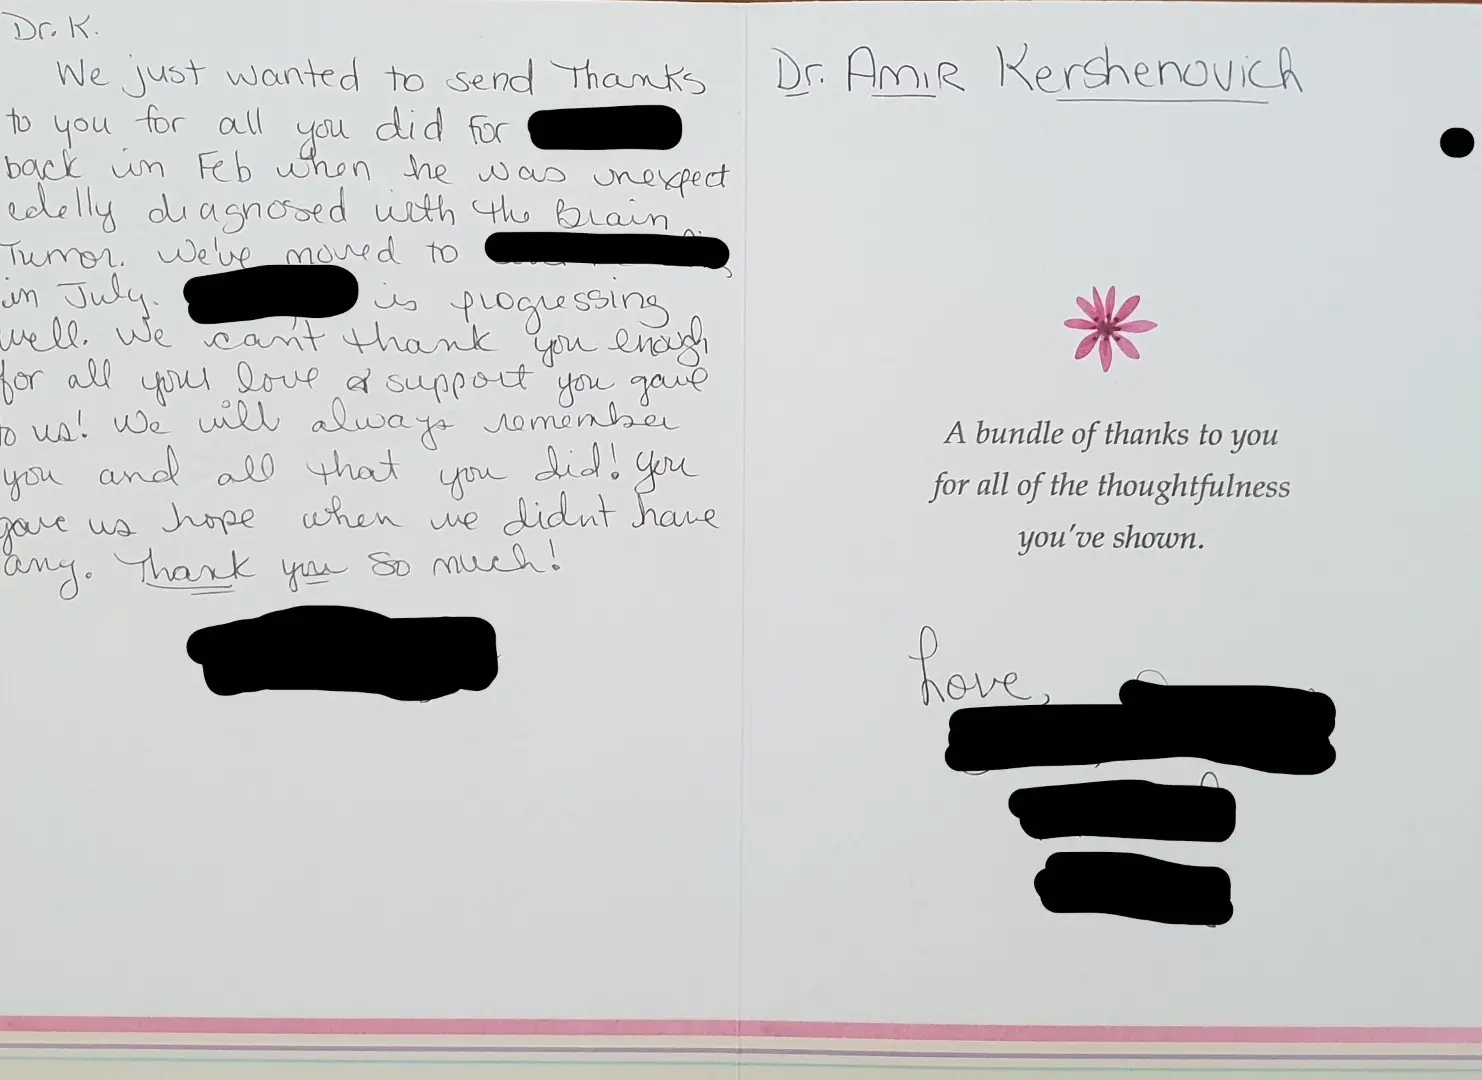 Dr. K.
We just wanted to send Thanks
to you for all you did for
back in Feb when he was unexpect
edelly diagnosed with the Brain
Tumor. We've moved to
in July. is progressing
well. We can't thank you enough
for all your love & support you gave
to us! We will always remember
you and all that you did! You
gave us hope when we didn't have
any. Thank you so much!
Dr. Amir Kershenovich
A bundle of thanks to you
for all of the thoughtfulness
you've shown.
Love,